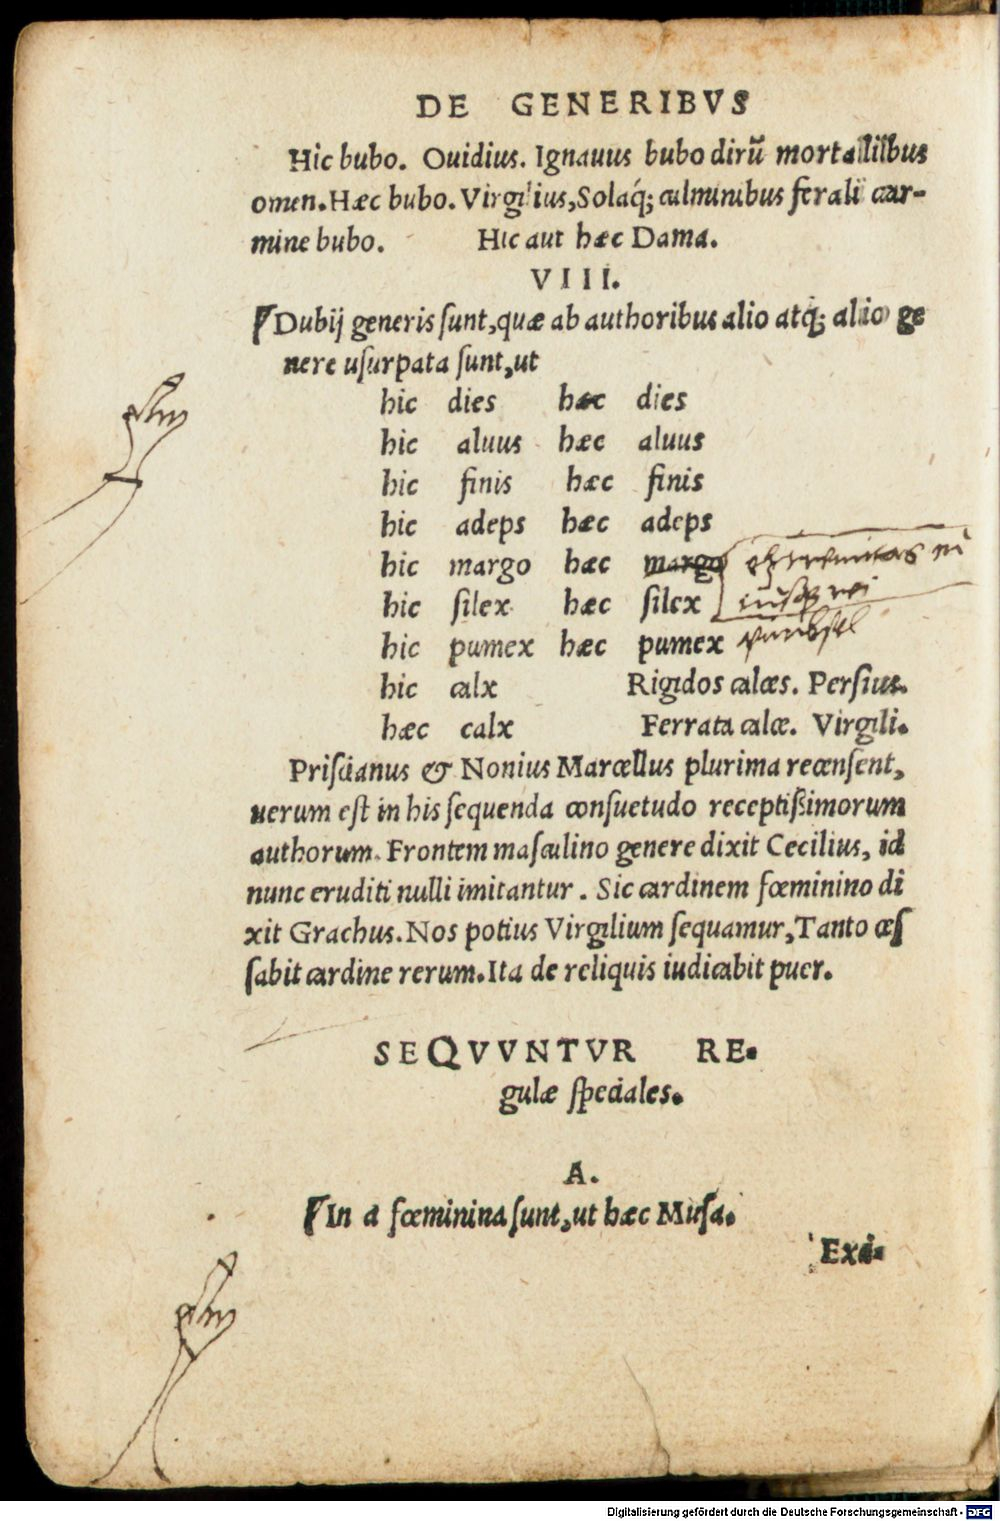 DE GENERIBVS
Hic bubo. Ouidius. Ignauus bubo dirũ mortalilbus
omen. Hæc bubo. Virgilius, Solaq́; culminibus ferali car-
mine bubo. Hic aut hæc Dama.
VIII.
Dubij generis ſunt, quæ ab authoribus alio atq́; alio ge
nere uſurpata ſunt, ut
hic dies hæc dies
hic aluus hæc aluus
hic finis hæc finis
hic adeps hæc adeps
hic margo hæc margo extremitas
hic ſilex hæc ſilex rei
hic pumex hæc pumex
hic calx Rigidos calces. Perſius.
hæc calx Ferrata calce. Virgili.
Priſcianus & Nonius Marcellus plurima recenſent,
uerum eſt in his ſequenda conſuetudo receptißimorum
authorum. Frontem maſculino genere dixit Cecilius, id
nunc eruditi nulli imitantur. Sic cardinem fœminino di
xit Grachus. Nos potius Virgilium ſequamur, Tanto ceſ
ſabit cardine rerum. Ita de reliquis iudicabit puer.
SEQVVNTVR RE-
gulæ ſpeciales.
A.
In a fœminina ſunt, ut hæc Muſa.
Exci-
Digitalisierung gefördert durch die Deutsche Forschungsgemeinschaft - DFG